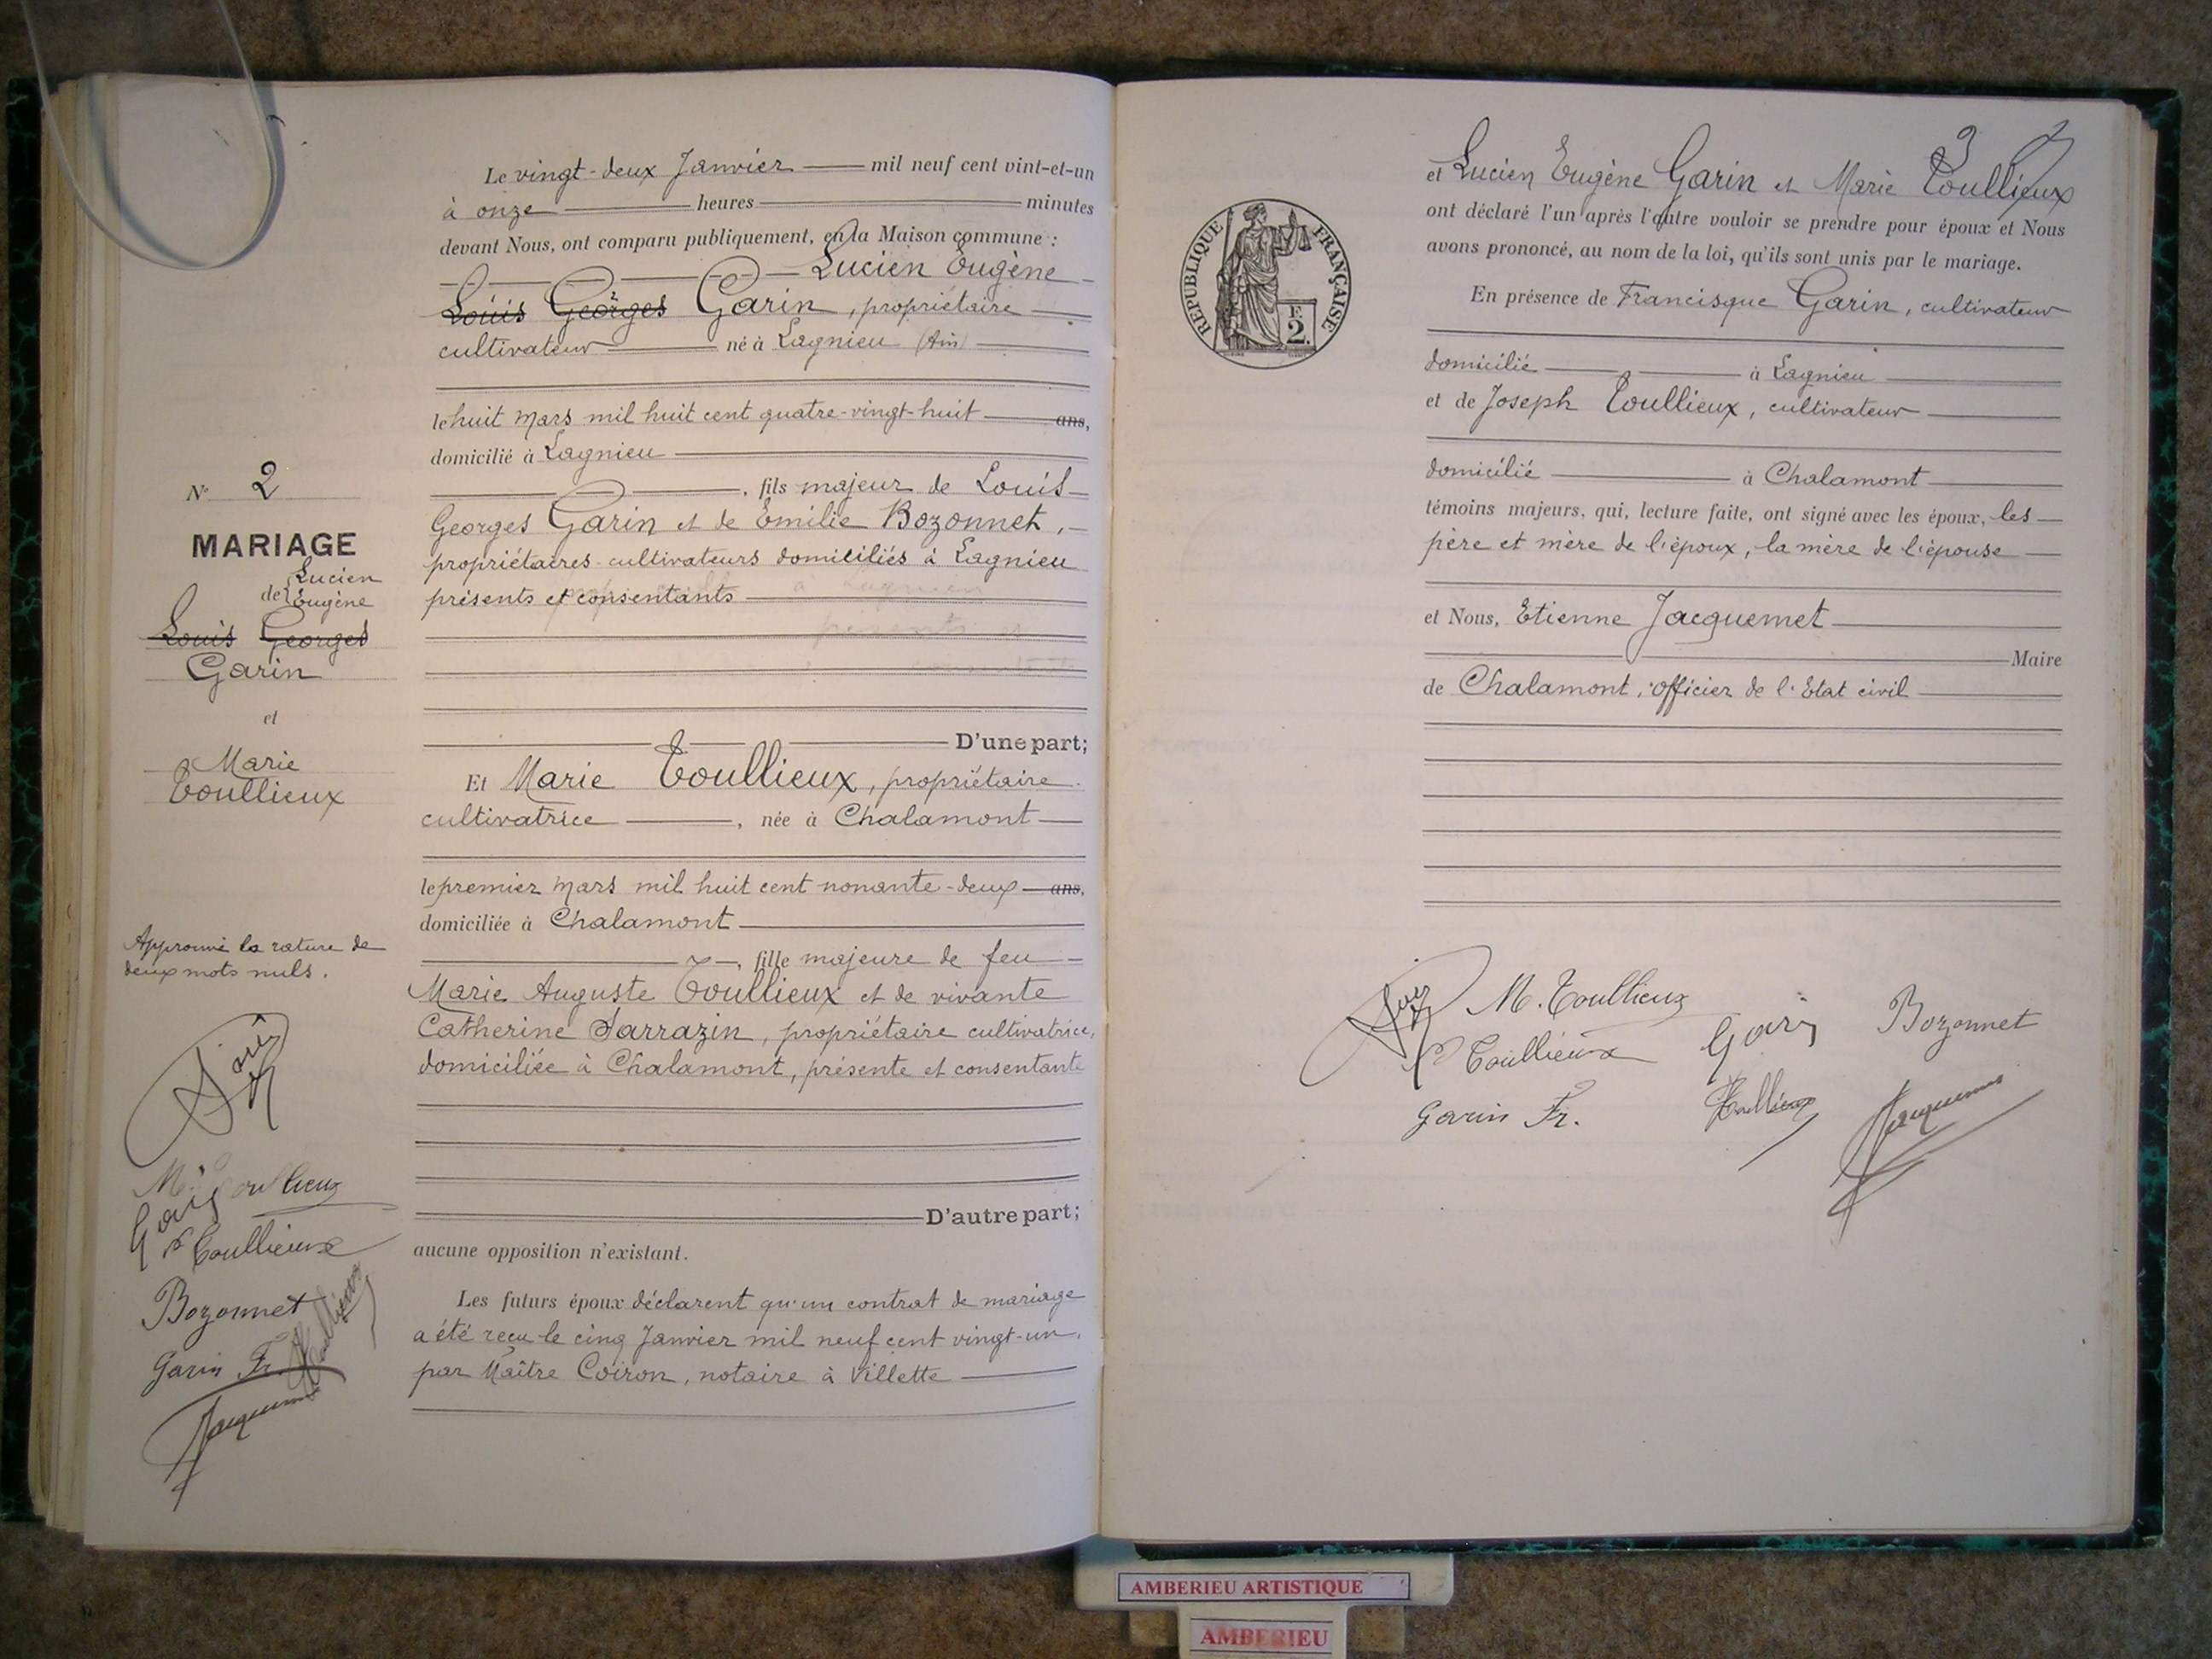 Le vingt-deux Janvier mil neuf cent vint-et-un
à onze heures minutes
devant Nous, ont comparu publiquement, en la Maison commune :
Lucien Eugène
Louis Georges Garin, propriétaire
cultivateur né à Lagnieu (Ain)
le huit Mars mil huit cent quatre-vingt-huit ans,
domicilié à Lagnieu
, fils majeur de Louis
Georges Garin et de Emilie Bozonnet,
propriétaires-cultivateurs domiciliés à Lagnieu
présents et consentants
D'une part;
Et Marie Toullieux, propriétaire
cultivatrice, née à Chalamont
le premier Mars mil huit cent nonante-deux ans,
domiciliée à Chalamont
, fille majeure de feu
Marie Auguste Toullieux et de vivante
Catherine Sarrazin, propriétaire cultivatrice,
domiciliée à Chalamont, présente et consentante
D'autre part;
aucune opposition n'existant.
Les futurs époux déclarent qu'un contrat de mariage
a été reçu le cinq Janvier mil neuf cent vingt-un,
par Maître Coiron, notaire à Villette
N° 2
MARIAGE
de Lucien
Eugène
Louis Georges
Garin
et
Marie
Toullieux
Approuvé la rature de
deux mots nuls.
M. Toullieux
Garin
Toullieux
Bozonnet
Toullieux
Garin Fr.
Jacquemet
3
et Lucien Eugène Garin et Marie Toullieux
ont déclaré l'un après l'autre vouloir se prendre pour époux et Nous
avons prononcé, au nom de la loi, qu'ils sont unis par le mariage.
En présence de Francisque Garin, cultivateur
domicilié à Lagnieu
et de Joseph Toullieux, cultivateur
domicilié à Chalamont
témoins majeurs, qui, lecture faite, ont signé avec les époux, les
père et mère de l'époux, la mère de l'épouse
et Nous, Etienne Jacquemet
Maire
de Chalamont, officier de l'Etat civil
RÉPUBLIQUE FRANÇAISE
F.
2.
M. Toullieux
Toullieux Garin Bozonnet
Garin Fr. Toullieux Jacquemet
AMBERIEU ARTISTIQUE
AMBERIEU